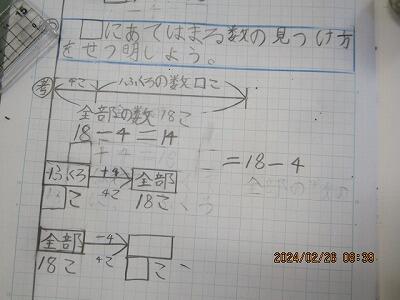 □にあてはまる数の見つけ方
をせつ明しよう。
考
4こ
ふくろの数□こ
全部の数18こ
18-4=14
=18-4
ふくろ +4 全部
□こ 4こ 18こ
全部 -4
18こ 4こ □こ
2024/02/26 09:39